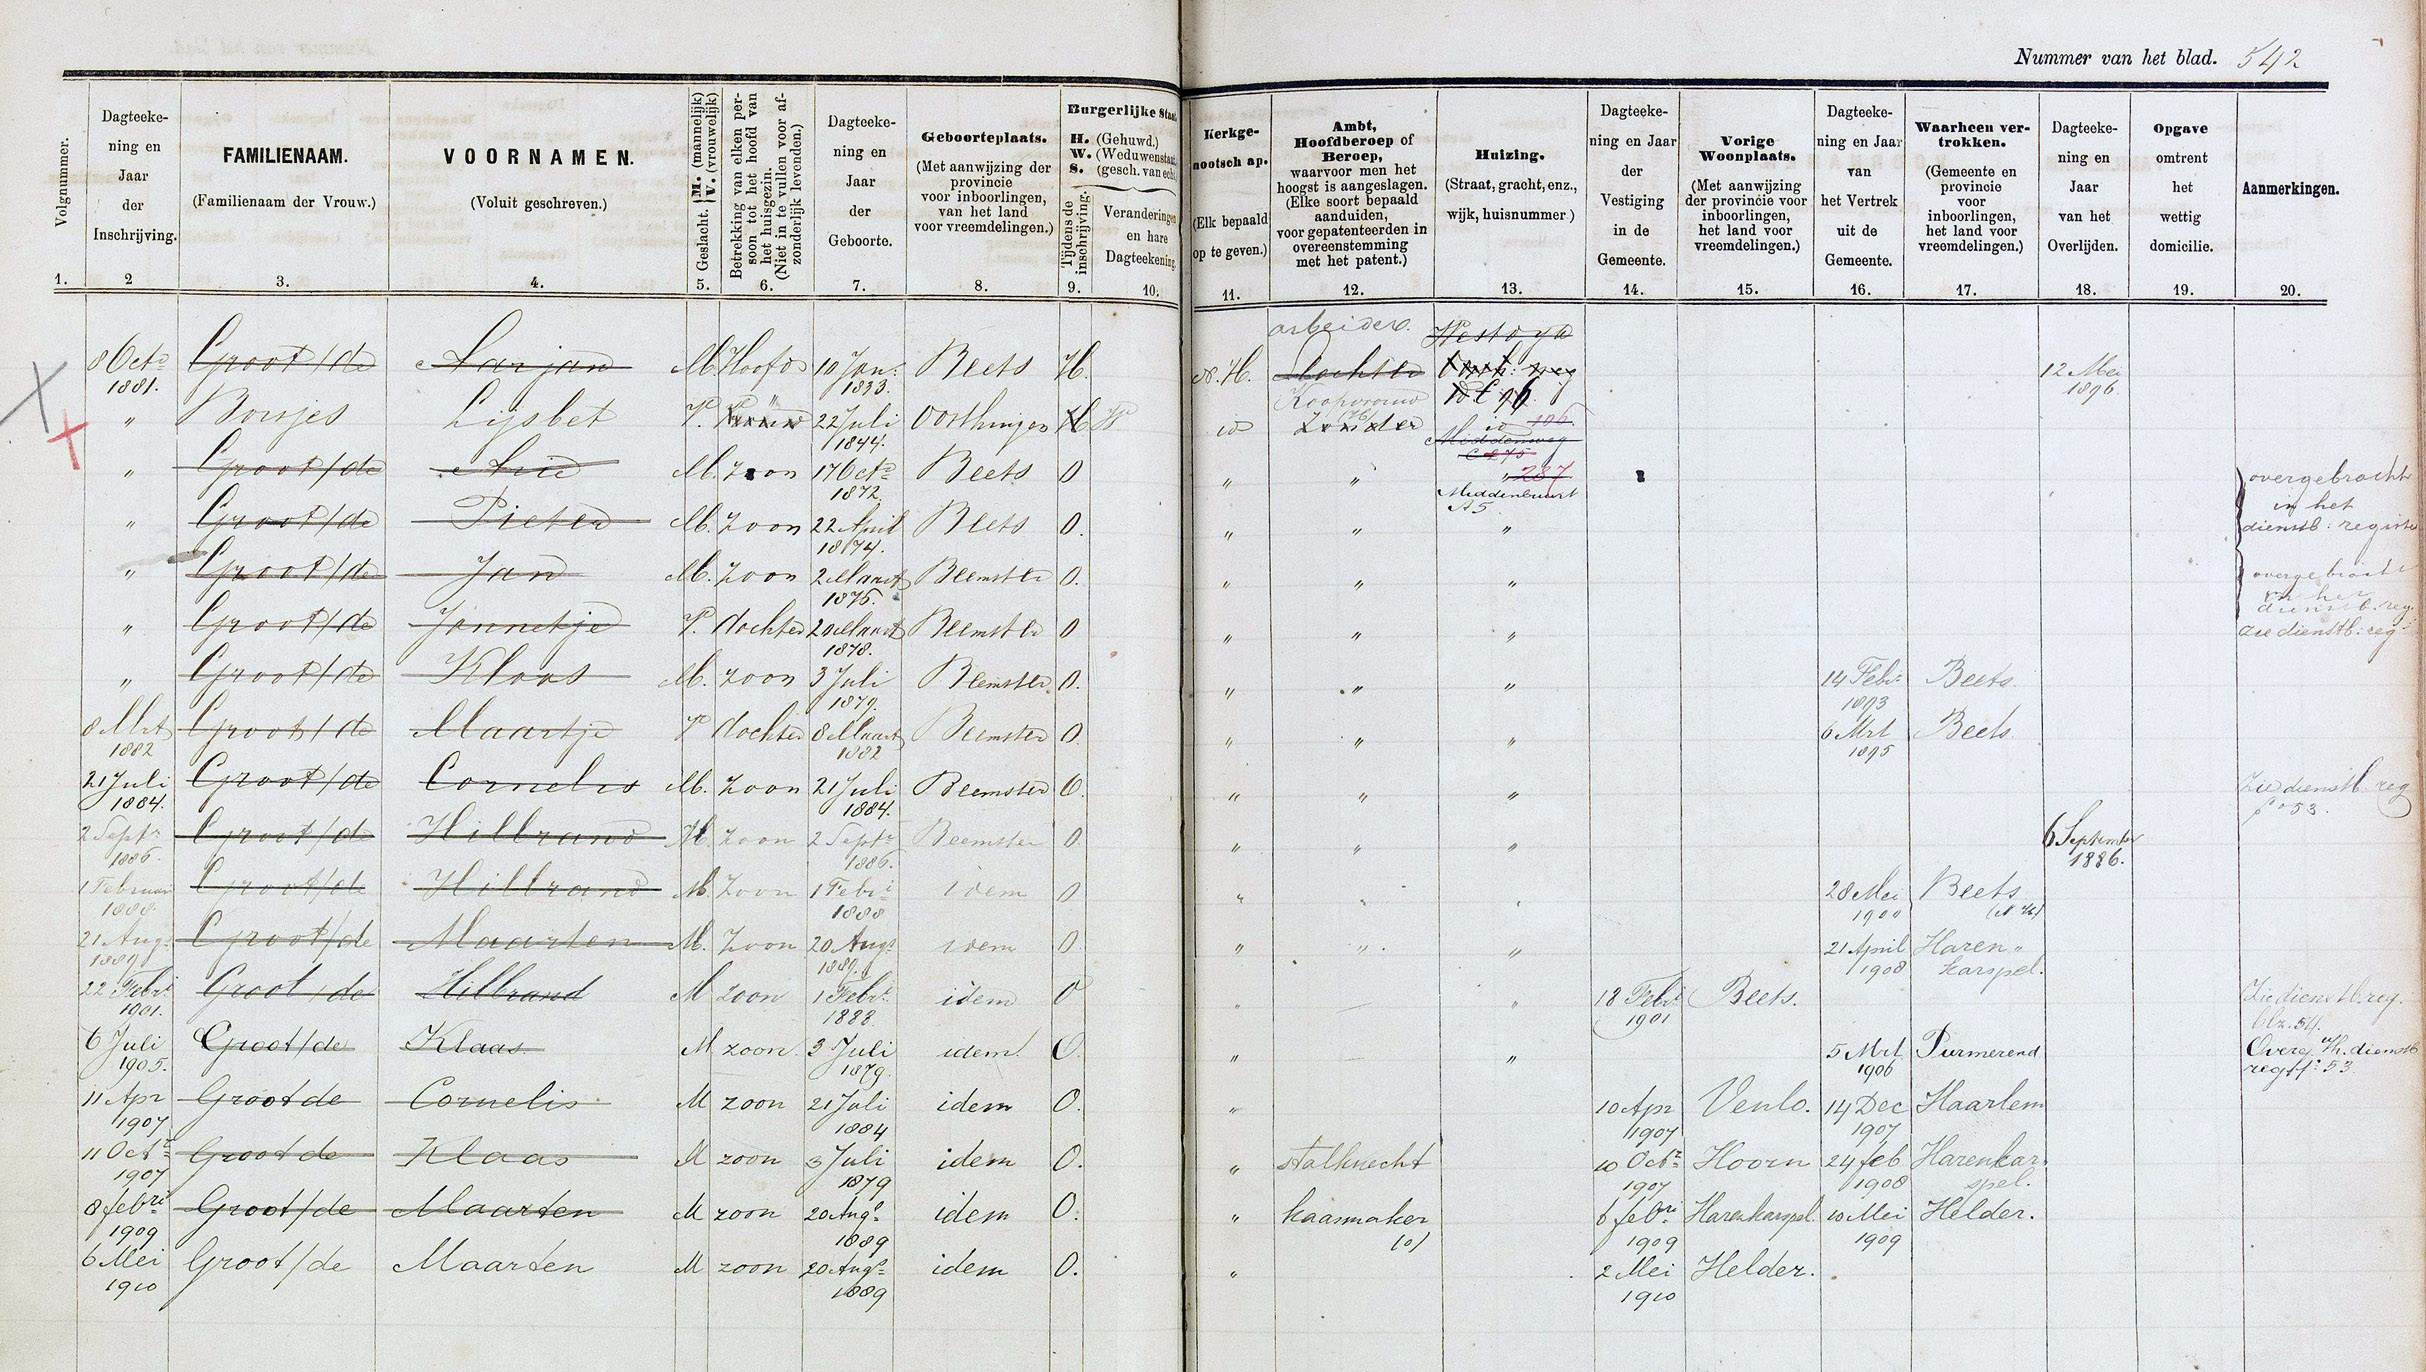 Nummer van het blad. 542
Volgnummer. 1.
Dagteeke-
ning en
Jaar
der
Inschrijving.
2
FAMILIENAAM.
(Familienaam der Vrouw.)
3.
VOORNAMEN.
(Voluit geschreven.)
4.
Geslacht. M. (mannelijk) V. (vrouwelijk)
5.
Betrekking van elken per-
soon tot het hoofd van
het huisgezin.
(Niet in te vullen voor af-
zonderlijk levenden.)
6.
Dagteeke-
ning en
Jaar
der
Geboorte.
7.
Geboorteplaats.
(Met aanwijzing der
provincie
voor inboorlingen,
van het land
voor vreemdelingen.)
8.
Burgerlijke Staat
H. (Gehuwd.)
W. (Weduwenstaat
S. (gesch. van echt
Tijdens de
inschrijving.
9.
Veranderingen
en hare
Dagteekening
10.
Kerkge-
nootsch ap.
(Elk bepaald
op te geven.)
11.
Ambt,
Hoofdberoep of
Beroep,
waarvoor men het
hoogst is aangeslagen.
(Elke soort bepaald
aanduiden,
voor gepatenteerden in
overeenstemming
met het patent.)
12.
Huizing.
(Straat, gracht, enz.,
wijk, huisnummer)
13.
Dagteeke-
ning en Jaar
der
Vestiging
in de
Gemeente.
14.
Vorige
Woonplaats.
(Met aanwijzing
der provincie voor
inboorlingen,
het land voor
vreemdelingen.)
15.
Dagteeke-
ning en Jaar
van
het Vertrek
uit de
Gemeente.
16.
Waarheen ver-
trokken.
(Gemeente en
provincie
voor
inboorlingen,
het land voor
vreemdelingen.)
17.
Dagteeke-
ning en
Jaar
van het
Overlijden.
18.
Opgave
omtrent
het
wettig
domicilie.
19.
Aanmerkingen.
20.
arbeider.
8 Octr 1881. Groot/de Jan M Hoofd 10 Jan: 1833. Beets H. N.H. 12 Mei 1896
" Lijsbet V. 22 Juli 1844. Oosthuizen H W id Koopvrouw Zonder id 196
Middenweg
C 275
" Groot/de Arie M. Zoon 17 Octr 1872. Beets O " " " 287
Middenbuurt
A5.
overgebracht
in het
dienstb: registe
" Groot/de Pieter M. Zoon 22 April 1874. Beets O. " " "
" Groot/de Jan M. Zoon 2 Maart 1875. Beemster O. " " " overgebracht
in het
dienstb. reg.
" Groot/de Jannetje V. dochter 20 Maart 1878. Beemster O " " " zie dienstb: reg
" Groot/de Klaas M. Zoon 3 Juli 1879. Beemster O. " " " 14 Febr. 1893 Beets.
8 Mrt 1882 Groot/de Maartje V dochter 8 Maart 1882 Beemster O. " " " 6 Mrt 1895 Beets
21 Juli 1884. Groot/de Cornelis M. Zoon 21 Juli 1884. Beemster O. " " " Zie dienstb. reg
fo 53.
2 Septr 1886. Groot/de Hilbrand M. Zoon 2 Septr 1886. Beemster O. " " " 6 September 1886.
1 Februari 1888 Groot/de Hilbrand M. Zoon 1 Febr: 1888 idem O " " " 28 Mei 1900 Beets (N H)
21 Augs 1889 Groot/de Maarten M. Zoon 20 Augs 1889. idem O. " " " 21 April 1908 Haren"
karspel.
22 Febr. 1901. Groot/de Hilbrand M Zoon 1 Febr. 1888 idem O " " 18 Febr. 1901 Beets. Zie dienstb. reg.
blz. 54.
6 Juli 1905. Groot/de Klaas M zoon. 3 Juli 1879. idem. O. " " 5 Mrt 1906 Purmerend Overg. n/h. dienstb
reg ff: 53
11 Apr 1907 Groot de Cornelis M zoon 21 Juli 1884 idem O. " 10 Apr 1907 Venlo. 14 Dec 1907 Haarlem
11 Octr 1907 Groot de Klaas M zoon 3 Juli 1879 idem O. " stalknecht 10 Octr 1907 Hoorn 24 feb 1908 Harenkar-
spel.
8 febri 1909 Groot/de Maarten M zoon 20 Augs 1889 idem O. " kaasmaker (o) 6 febri 1909 Harenkarspel. 10 Mei 1909 Helder.
6 Mei 1910 Groot/de Maarten M zoon 20 Augs 1889 idem O. " 2 Mei 1910 Helder.